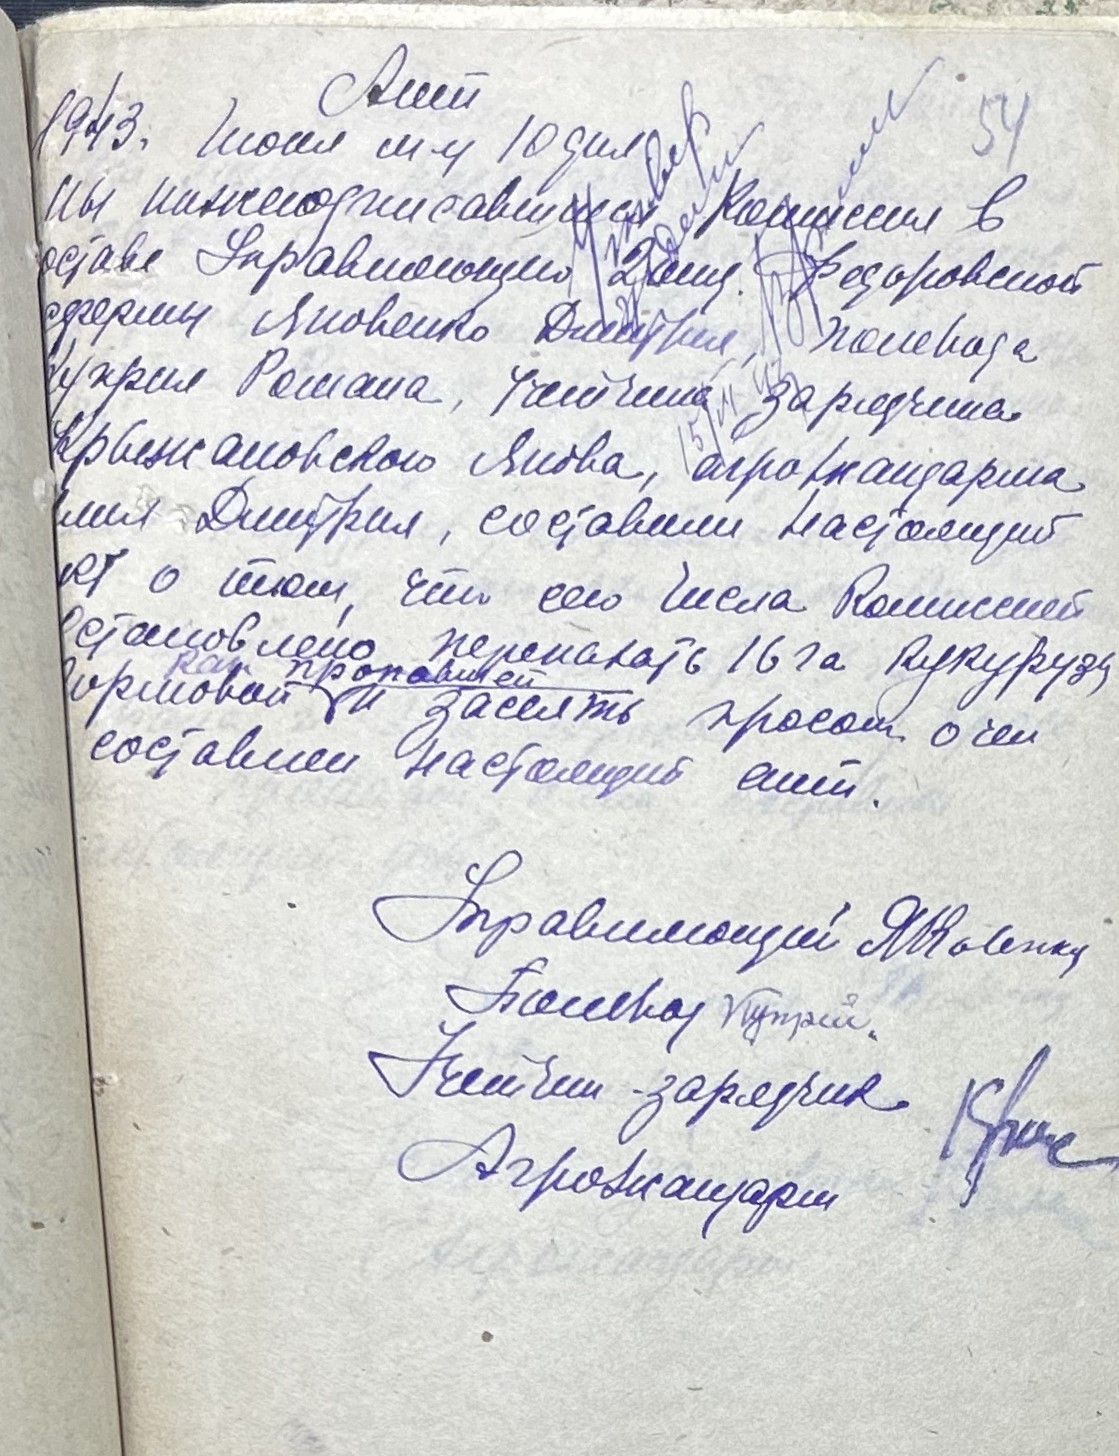 54
Акт
1943. Июня м-ц 10 дня
мы нижеподписавшиеся Комиссия в
оставе Управляющего 2 общ. Федоровской
фермы Яковенко Дмитрия, полевода
Куприя Романа, учетчика зарядчика
Крыжановского Якова, агрожандарма
Дмитрия, составили настоящий
кт о том, что сего числа Комиссией
становлено перепахать 16 га кукурузы
как пропавшей
кормовой и засеять просом о чем
составлен настоящий акт.
Управляющий Яковенко
Полевод Куприй.
Учетчик-зарядчик
Агрожандарм